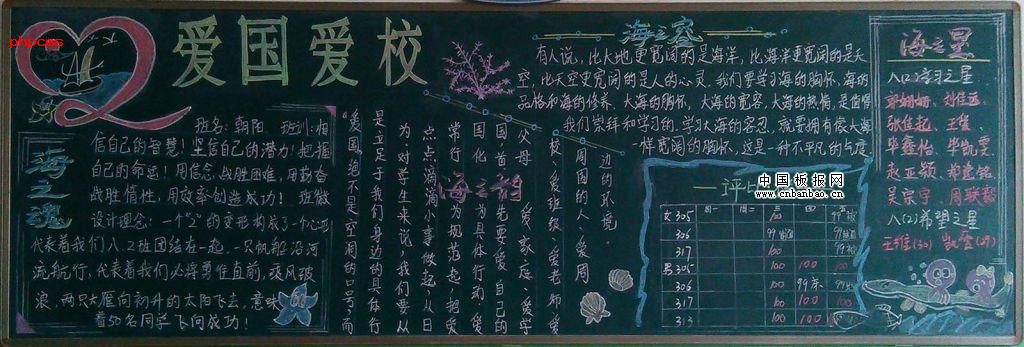 phpcms
爱国爱校
班名:朝阳 班训:相
信自己的智慧!坚信自己的潜力!把握
自己的命运!用信念,战胜困难,用勤奋
战胜惰性,用效率创造成功! 班徽
设计理念:一个"2"的变形构成了一个心形
代表着我们八.2班团结在一起,一只帆船沿河
流航行,代表着我们必将勇往直前,乘风破
浪,两只大雁向初升的太阳飞去,意味
着50名同学飞向成功!
海之魂
海之韵
边的环境。
周围的人、爱周
校、爱班级、爱老师、爱
父母、爱家庭、爱学
国,首先要爱自己的
国化为具体行动,爱
常行为规范起,把爱
点点滴滴小事做起,从日
为。对学生来说,我们要从
是立足于我们身边的具体行
"爱国"绝不是空洞的口号,而
海之容
有人说,比大地更宽阔的是海洋,比海洋更宽阔的是天
空,比天空更宽阔的是人的心灵。我们要学习海的胸怀,海的
品格和海的修养。大海的胸怀,大海的宽容,大海的热情,是值得
我们崇拜和学习的,学习大海的容忍,就要拥有像大海
一样宽阔的胸怀,这是一种不平凡的气度
一评比
中国板报网
www.banbao.cn
周一 周二
女305 100 99
306 99
317 100 99
男305 100 100 100
306 100 99 100
317 100 100 100
313 100 100
海之星
八(2)学习之星
刘佳
张佳
赵亚颖
吴宗宇
八(2)希望之星
王 (30) (29)